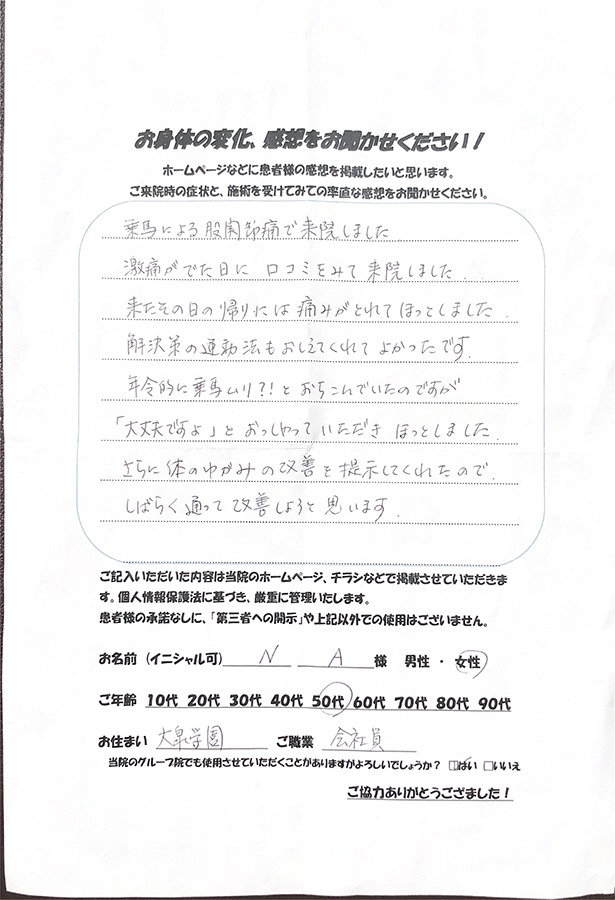 お身体の変化、感想をお聞かせください！
ホームページなどに患者様の感想を掲載したいと思います。
ご来院時の症状と、施術を受けてみての率直な感想をお聞かせください。
乗馬による股関節痛で来院しました
激痛がでた日に 口コミをみて来院しました.
来たその日の帰りには痛みがとれてほっとしました.
解決策の運動法もおしえてくれてよかったです.
年令的に乗馬ムリ?!とおちこんでいたのですが
「大丈夫ですよ」とおっしゃっていただきほっとしました.
さらに体のゆがみの改善を提示してくれたので.
しばらく通って改善しようと思います.
ご記入いただいた内容は当院のホームページ、チラシなどで掲載させていただきま
す。個人情報保護法に基づき、厳重に管理いたします。
患者様の承諾なしに、「第三者への開示」や上記以外での使用はございません。
お名前（イニシャル可） N A 様 男性 ・ 女性
ご年齢 10代 20代 30代 40代 50代 60代 70代 80代 90代
お住まい 大泉学園 ご職業 会社員
当院のグループ院でも使用させていただくことがありますがよろしいでしょうか？ □はい □いいえ
ご協力ありがとうござました！